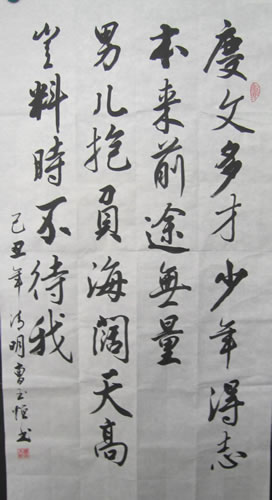 慶文多才少年得志
本来前途無量
男儿抱負海闊天高
豈料時不待我
己丑年清明曹玉恒书